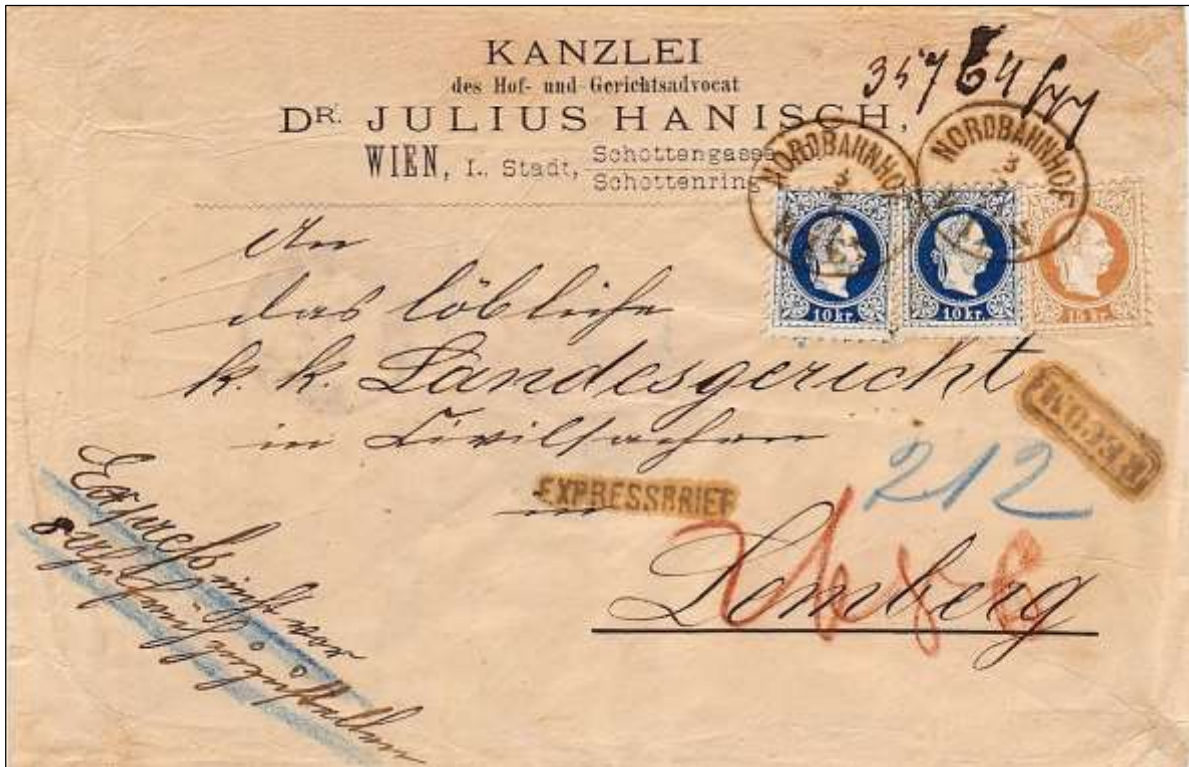 KANZLEI
des Hof- und Gerichtsadvocat
DR. JULIUS HANISCH,
WIEN, I. Stadt, Schottengasse
Schottenring
NORDBAHNHOF
NORDBAHNHOF
WIEN
10 kr.
10 kr.
15 kr.
An
das löbliche
k. k. Landesgericht
in Civilsachen
RECOM
212
EXPRESSBRIEF
in
Lemberg
Expreß nicht vor
8 Uhr früh zuzustellen